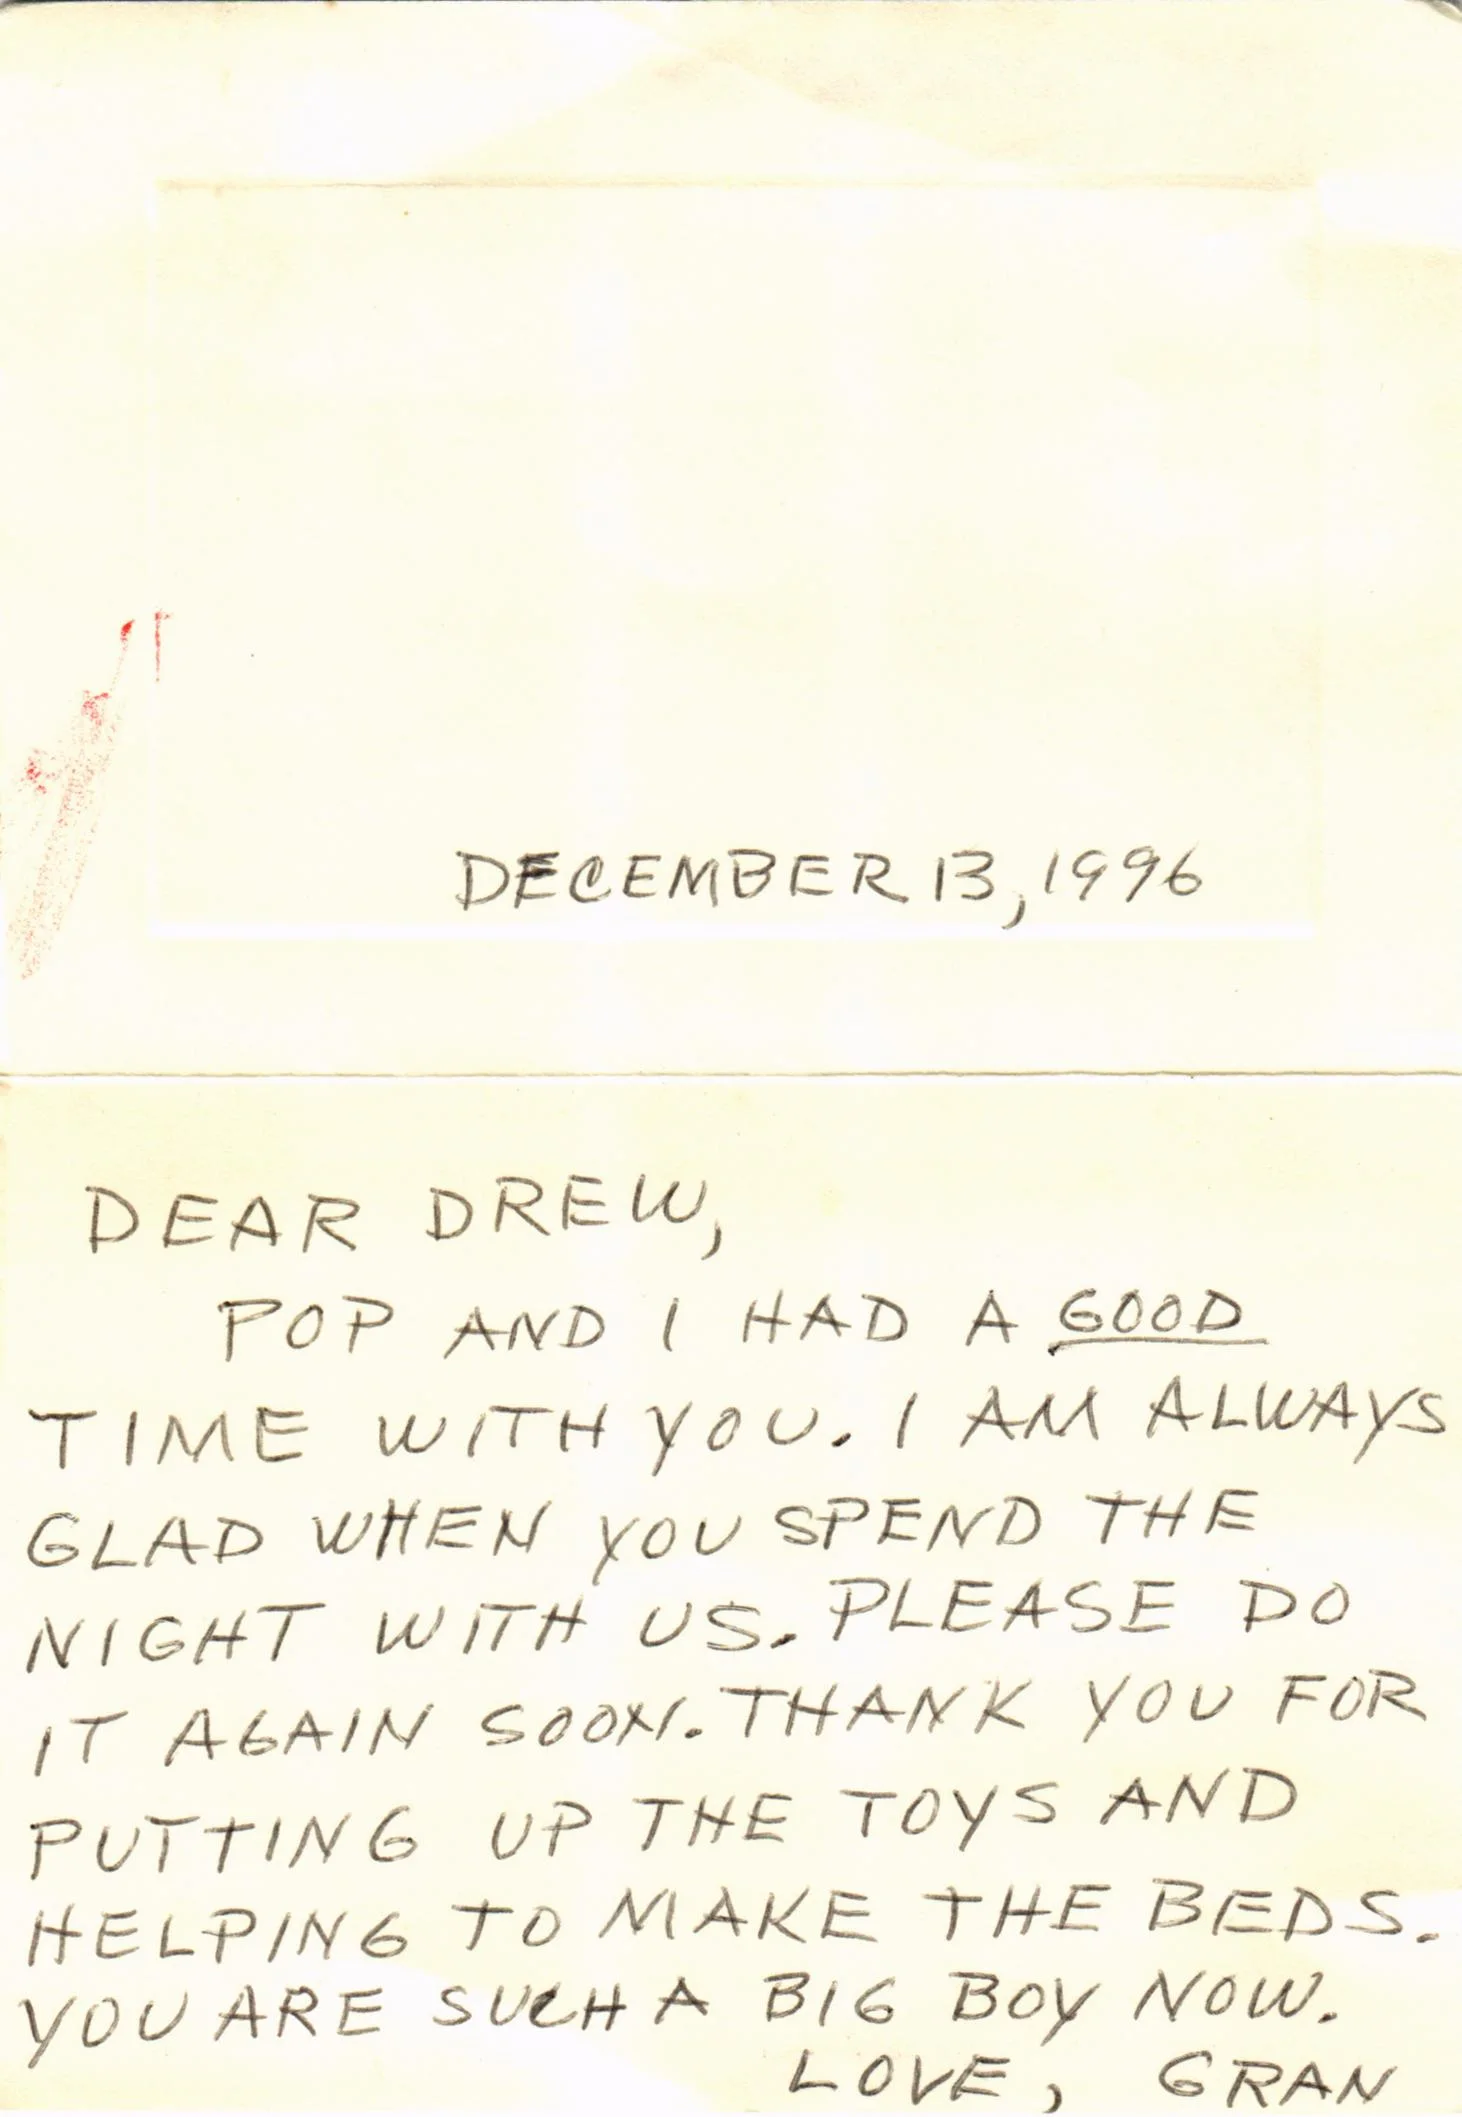 DECEMBER 13, 1996
DEAR DREW,
POP AND I HAD A GOOD
TIME WITH YOU. I AM ALWAYS
GLAD WHEN YOU SPEND THE
NIGHT WITH US. PLEASE DO
IT AGAIN SOON. THANK YOU FOR
PUTTING UP THE TOYS AND
HELPING TO MAKE THE BEDS.
YOU ARE SUCH A BIG BOY NOW.
LOVE, GRAN